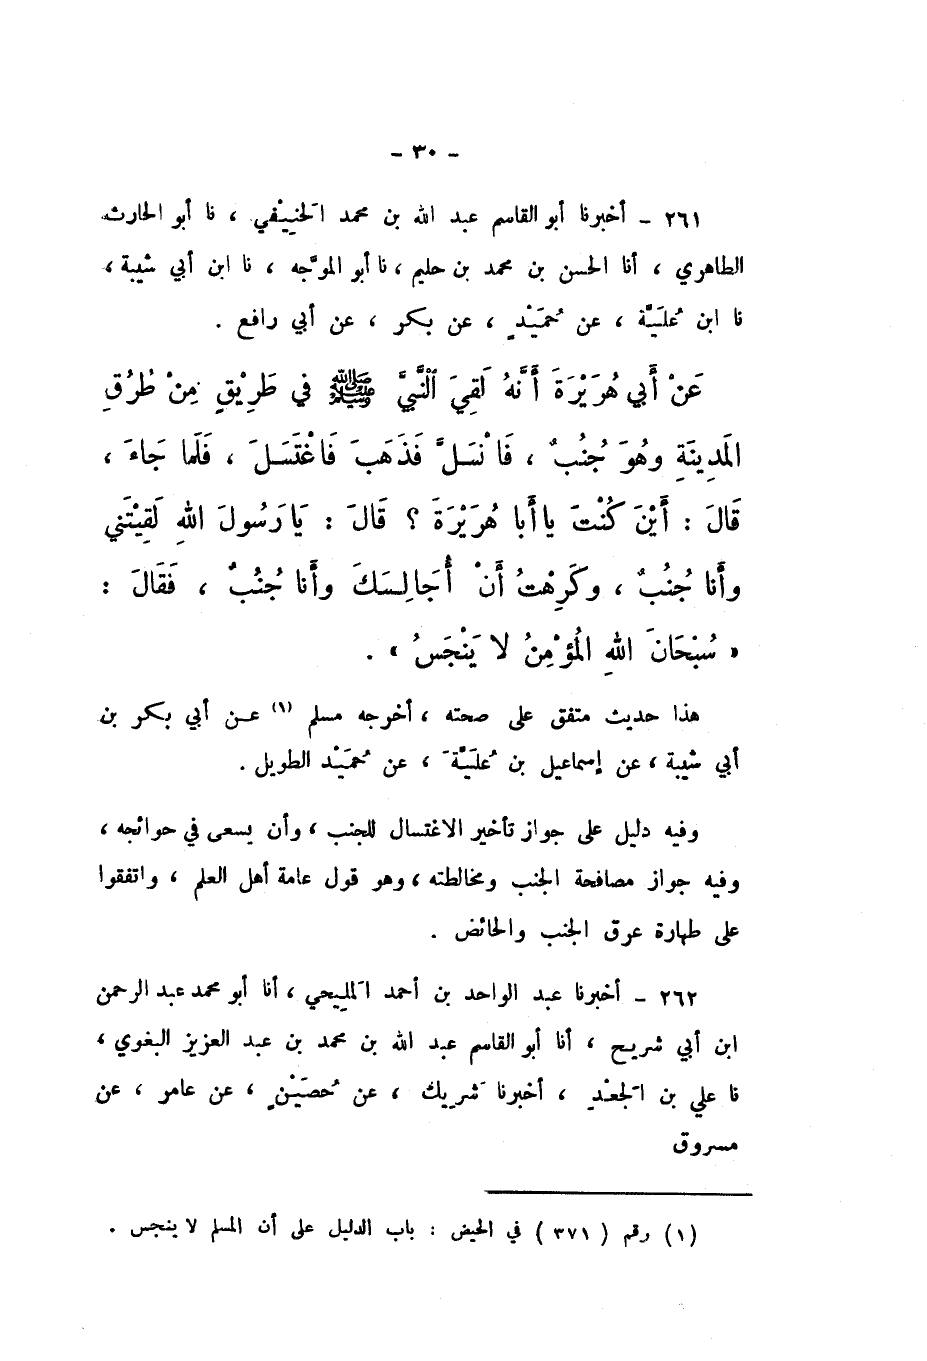 - ٣٠ -
٢٦١ - أخبرنا أبو القاسم عبد الله بن محمد الحَنِيْفي ، نا أبو الحارث
الطاهري ، أنا الحسن بن محمد بن حليم ، نا أبو الموَجّه ، نا ابن أبي شيبة ،
نا ابن عُلَيَّة ، عن حُمَيْدٍ ، عن بكر ، عن أبي رافع .
عَنْ أَبي هُرَيْرَةَ أَنَّهُ لَقِيَ النَّبيَّ ﷺ في طَرِيْقٍ مِنْ طُرُقِ
المَدِينَةِ وهُوَ جُنُبٌ ، فَانْسَلَّ فَذَهَبَ فَاغْتَسَلَ ، فَلَما جَاءَ ،
قَالَ : أَيْنَ كُنْتَ يا أَبا هُرَيْرَةَ ؟ قَالَ : يَا رَسُولَ اللهِ لَقِيْتَني
وأَنا جُنُبٌ ، وكَرِهْتُ أَنْ أُجَالِسَكَ وأَنا جُنُبٌ ، فَقَالَ :
« سُبْحَانَ اللهِ المُؤْمِنُ لا يَنْجَسُ » .
هذا حديث متفق على صحته ، أخرجه مسلم (١) عن أبي بكر بن
أبي شيبة ، عن إسماعيل بن عُلَيَّةَ ، عن حُمَيْد الطويل .
وفيه دليل على جواز تأخير الاغتسال للجنب ، وأن يسعى في حوائجه ،
وفيه جواز مصافحة الجنب ومخالطته ، وهو قول عامة أهل العلم ، واتفقوا
على طهارة عرق الجنب والحائض .
٢٦٢ - أخبرنا عبد الواحد بن أحمد المَلِيحي ، أنا أبو محمد عبد الرحمن
ابن أبي شريح ، أنا أبو القاسم عبد الله بن محمد بن عبد العزيز البغوي ،
نا علي بن الجَعْدِ ، أخبرنا شَرِيك ، عن حُصَيْنٍ ، عن عامر ، عن
مسروق
(١) رقم ( ٣٧١ ) في الحيض : باب الدليل على أن المسلم لا ينجس .